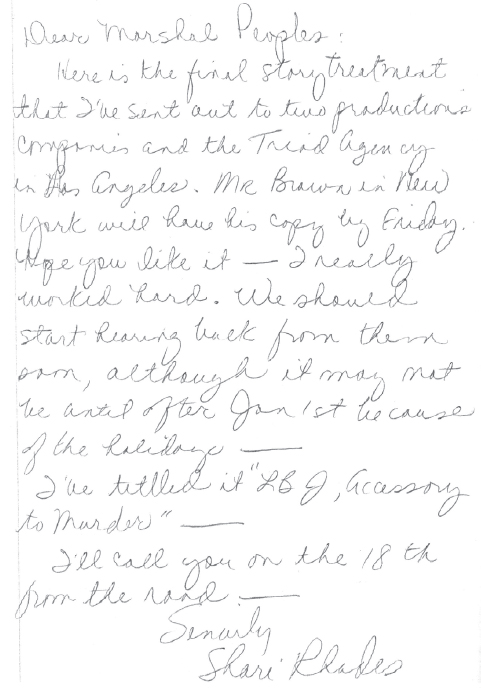 Dear Marshal Peoples:
Here is the final story treatment
that I've sent out to two productions
companies and the Triad Agency
in Los Angeles. Mr Brown in New
York will have his copy by Friday.
Hope you like it — I really
worked hard. We should
start hearing back from them
soon, although it may not
be until after Jan 1st because
of the holidays —
I've tittled it "LBJ, Accessory
to Murder" —
I'll call you on the 18th
from the road —
Shari Rhodes